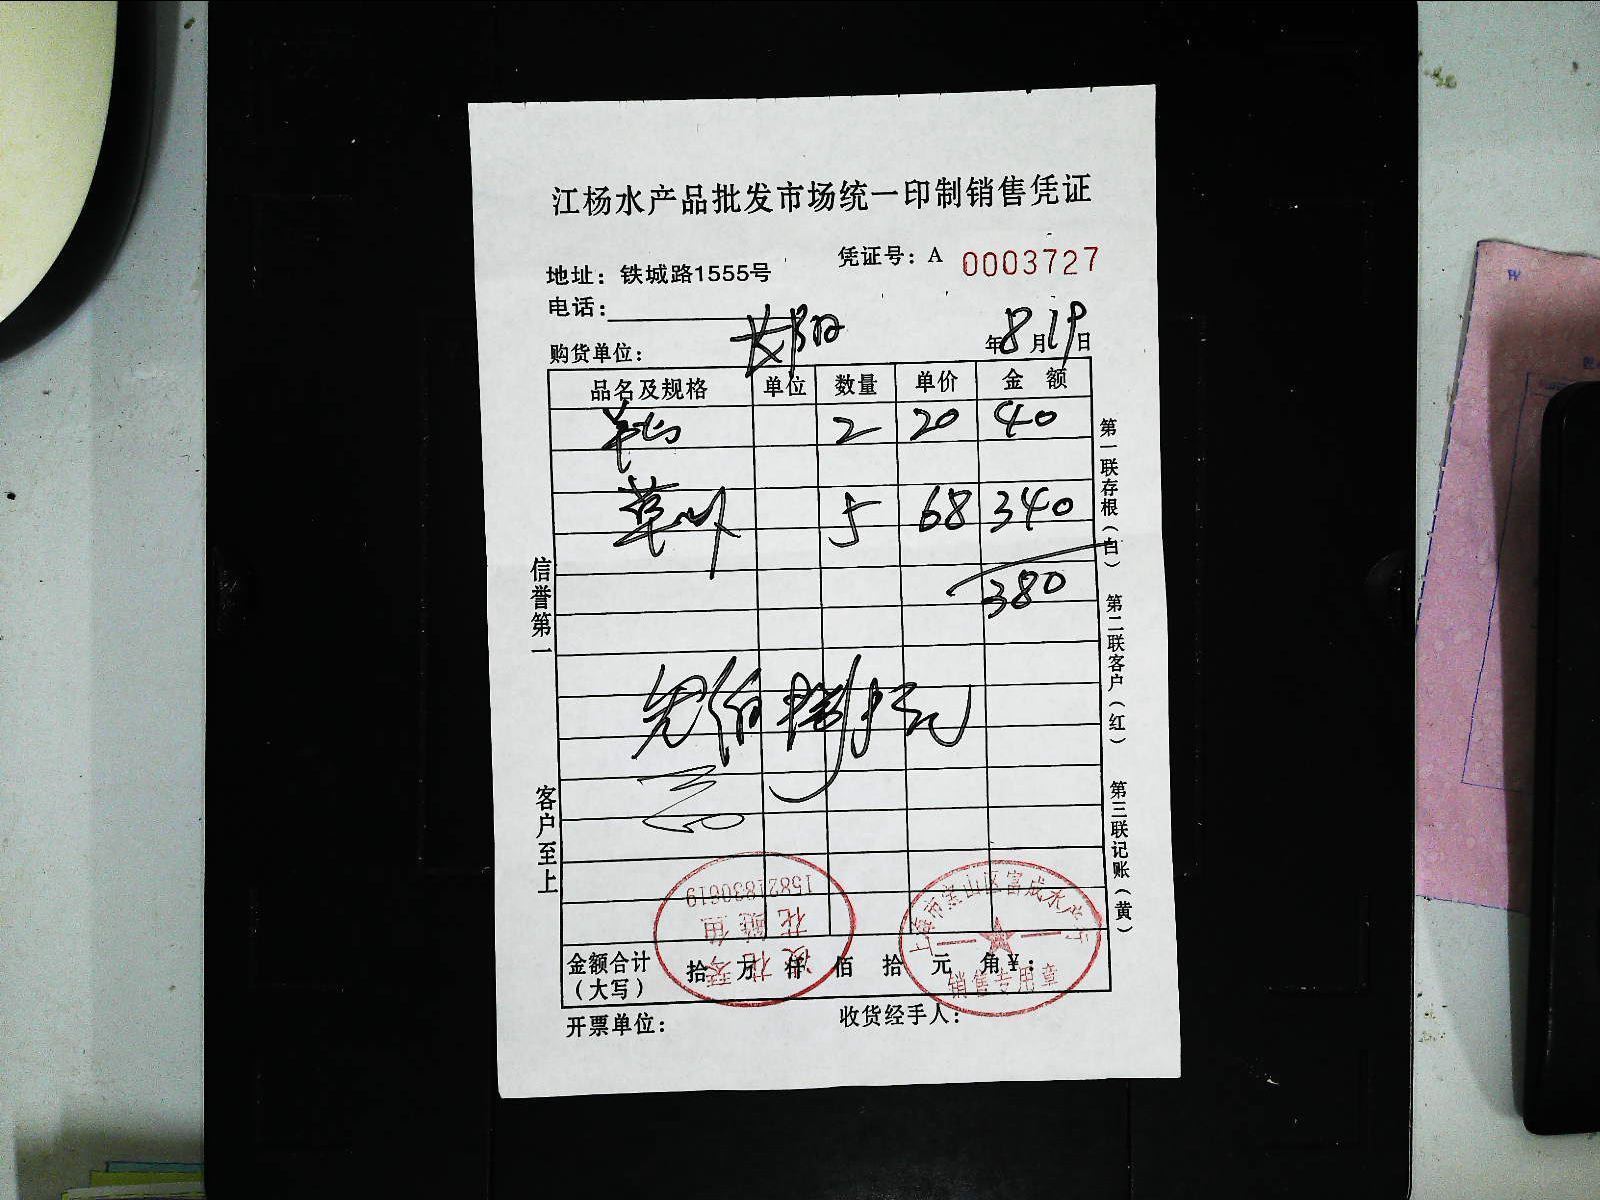 江杨水产品批发市场统一印制销售凭证
凭证号：A 0003727
地址：铁城路1555号
电话：
购货单位：
年8月19日
品名及规格 单位 数量 单价 金额
2 20 40
草 5 68 340
380
叁佰捌拾元
信誉第一
客户至上
第一联存根（白） 第二联客户（红） 第三联记账（黄）
15821830619
花鲢鱼
上海市宝山区富成水产
销售专用章
金额合计（大写） 拾 万 仟 佰 拾 元 角 ¥：
开票单位： 收货经手人：